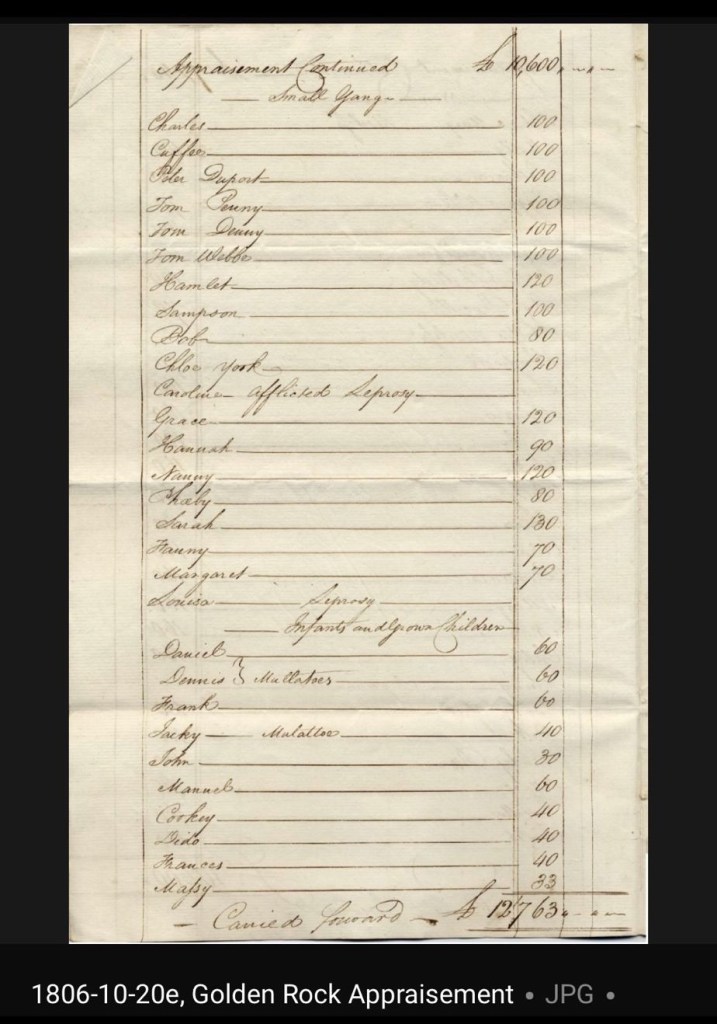 Appraisement Continued £ 10,600 " - " -
Small Gang
Charles 100
Cuffee 100
Peter Duport 100
Tom Penny 100
Tom Denny 100
Tom Webbe 100
Hamlet 120
Sampson 100
Bob 80
Chloe York 120
Caroline afflicted Leprosy
Grace 120
Hannah 90
Nanny 120
Phœby 80
Sarah 130
Fanny 70
Margaret 70
Louisa Leprosy
Infants and Grown Children
Daniel 60
Dennis } Mullatoes 60
Frank 60
Jacky Mulattoe 40
John 30
Manuel 60
Cookey 40
Dido 40
Frances 40
Massy 33
Carried forward £ 12763 " - " -
1806-10-20e, Golden Rock Appraisement • JPG •